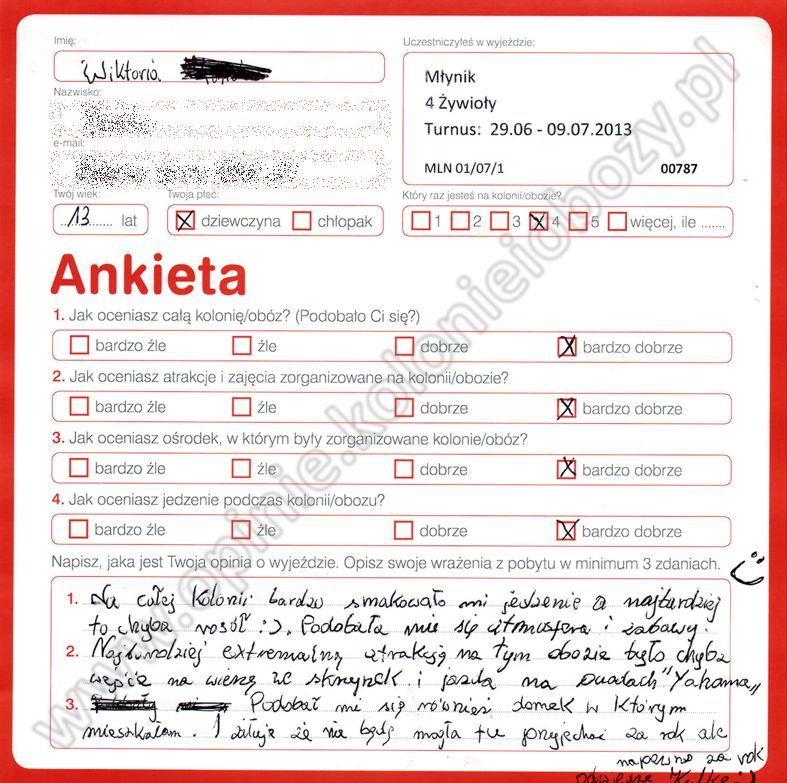 Imię:
Wiktoria
Uczestniczyłeś w wyjeździe:
Młynik
4 Żywioły
Turnus: 29.06 - 09.07.2013
MLN 01/07/1 00787
Nazwisko:
e-mail:
Twój wiek:
13 lat
Twoja płeć:
dziewczyna chłopak
Który raz jesteś na kolonii/obozie?
1 2 3 4 5 więcej, ile .......
Ankieta
1. Jak oceniasz całą kolonię/obóz? (Podobało Ci się?)
bardzo źle źle dobrze bardzo dobrze
2. Jak oceniasz atrakcje i zajęcia zorganizowane na kolonii/obozie?
bardzo źle źle dobrze bardzo dobrze
3. Jak oceniasz ośrodek, w którym były zorganizowane kolonie/obóz?
bardzo źle źle dobrze bardzo dobrze
4. Jak oceniasz jedzenie podczas kolonii/obozu?
bardzo źle źle dobrze bardzo dobrze
Napisz, jaka jest Twoja opinia o wyjeździe. Opisz swoje wrażenia z pobytu w minimum 3 zdaniach.
1. Na całej kolonii bardzo smakowało mi jedzenie a najbardziej
to chyba rosół :). Podobała mie się atmosfera i zabawy.
2. Najbardziej extremalną atrakcją na tym obozie było chyba
wejście na wieżę ze skrzynek i jazda na quadach "Yahama"
3. Podobał mi się również domek w którym
mieszkałam. I żałuje że nie będę mogła tu przyjechać za rok ale
napewno za rok
www.opinie.kolonieiobozy.pl